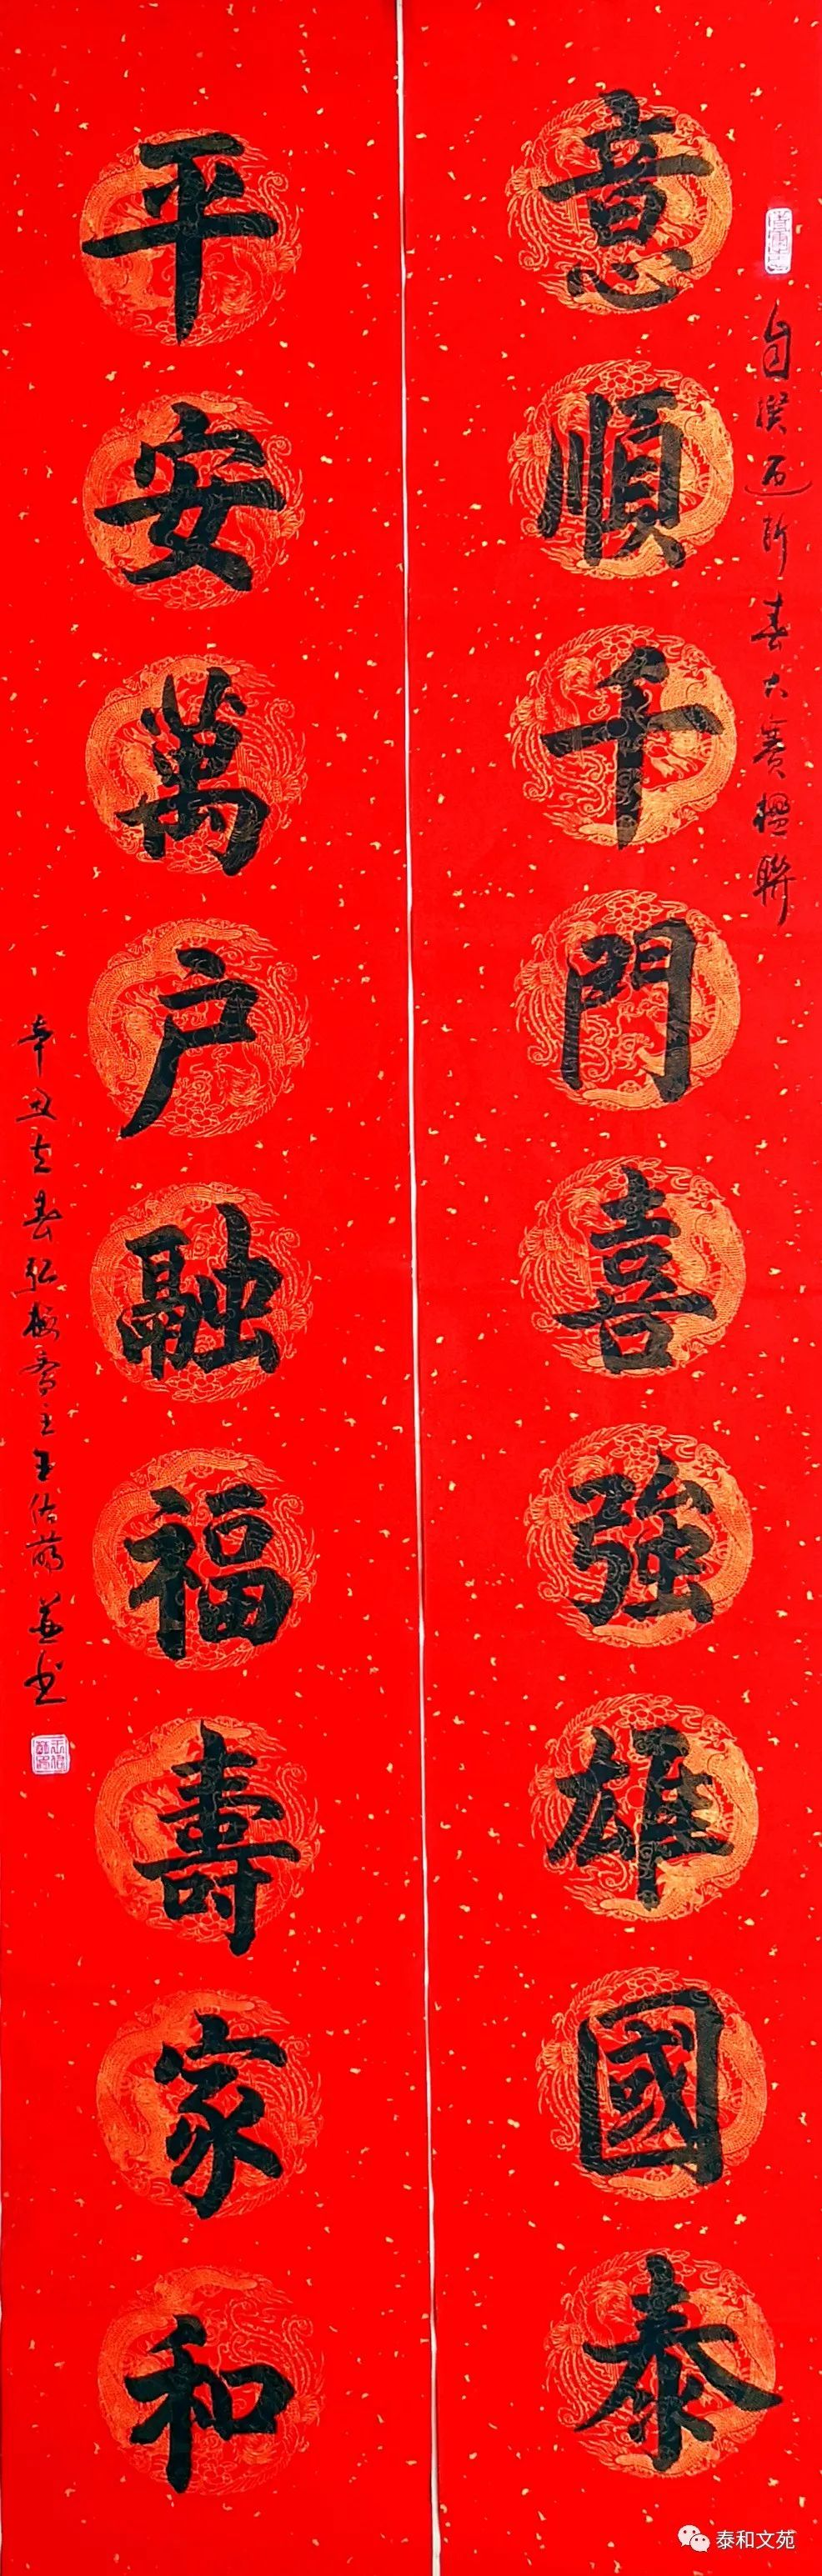 意順千門喜強雄國泰
平安萬户融福壽家和
自撰迎新春大賽楹聯
辛丑立春弘梅齋主王佑茚並书
泰和文苑